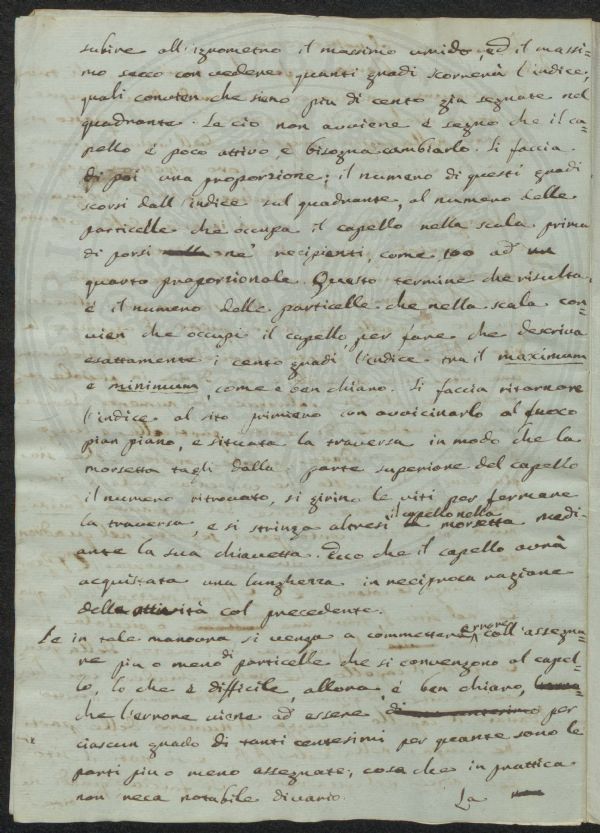 subire all'igrometro il massimo umido, ed il massi=
mo secco con vedere quanti gradi scorrerà l'indice,
quali convien che sieno più di cento già segnate nel
quadrante. Se ciò non avviene è segno che il ca=
pello è poco attivo, e bisogna cambiarlo. Si faccia
di poi una proporzione; il numero di questi gradi
scorsi dall'indice sul quadrante, al numero delle
particelle che occupa il capello nella scala prima
di porsi ne' recipienti, come 100 ad un
quarto proporzionale. Questo termine che risulta
è il numero delle particelle che nella scala con=
vien che occupi il capello, per fare che descriva
esattamente i cento gradi l'indice tra il maximum
e minimum, come è ben chiaro. Si faccia ritornare
l'indice al sito primiero con avvicinarlo al fuoco
pian piano, e situata la traversa in modo che la
morsetta tagli dalla parte superiore del capello
il numero ritrovato, si girino le viti per fermare
la traversa, e si stringa altresì il capello nella morsetta medi=
ante la sua chiavetta. Ecco che il capello avrà
acquistata una lunghezza in reciproca ragione
della attività col precedente.
Se in tale manovra si venga a commettere errore coll'assegna=
re più o meno di particelle che si convengono al capel=
lo, lo che è difficile, allora, è ben chiaro,
che l'errore viene ad essere per
ciascun grado di tanti centesimi per quante sono le
parti più o meno assegnate; cosa che in prattica
non reca notabile divario. La